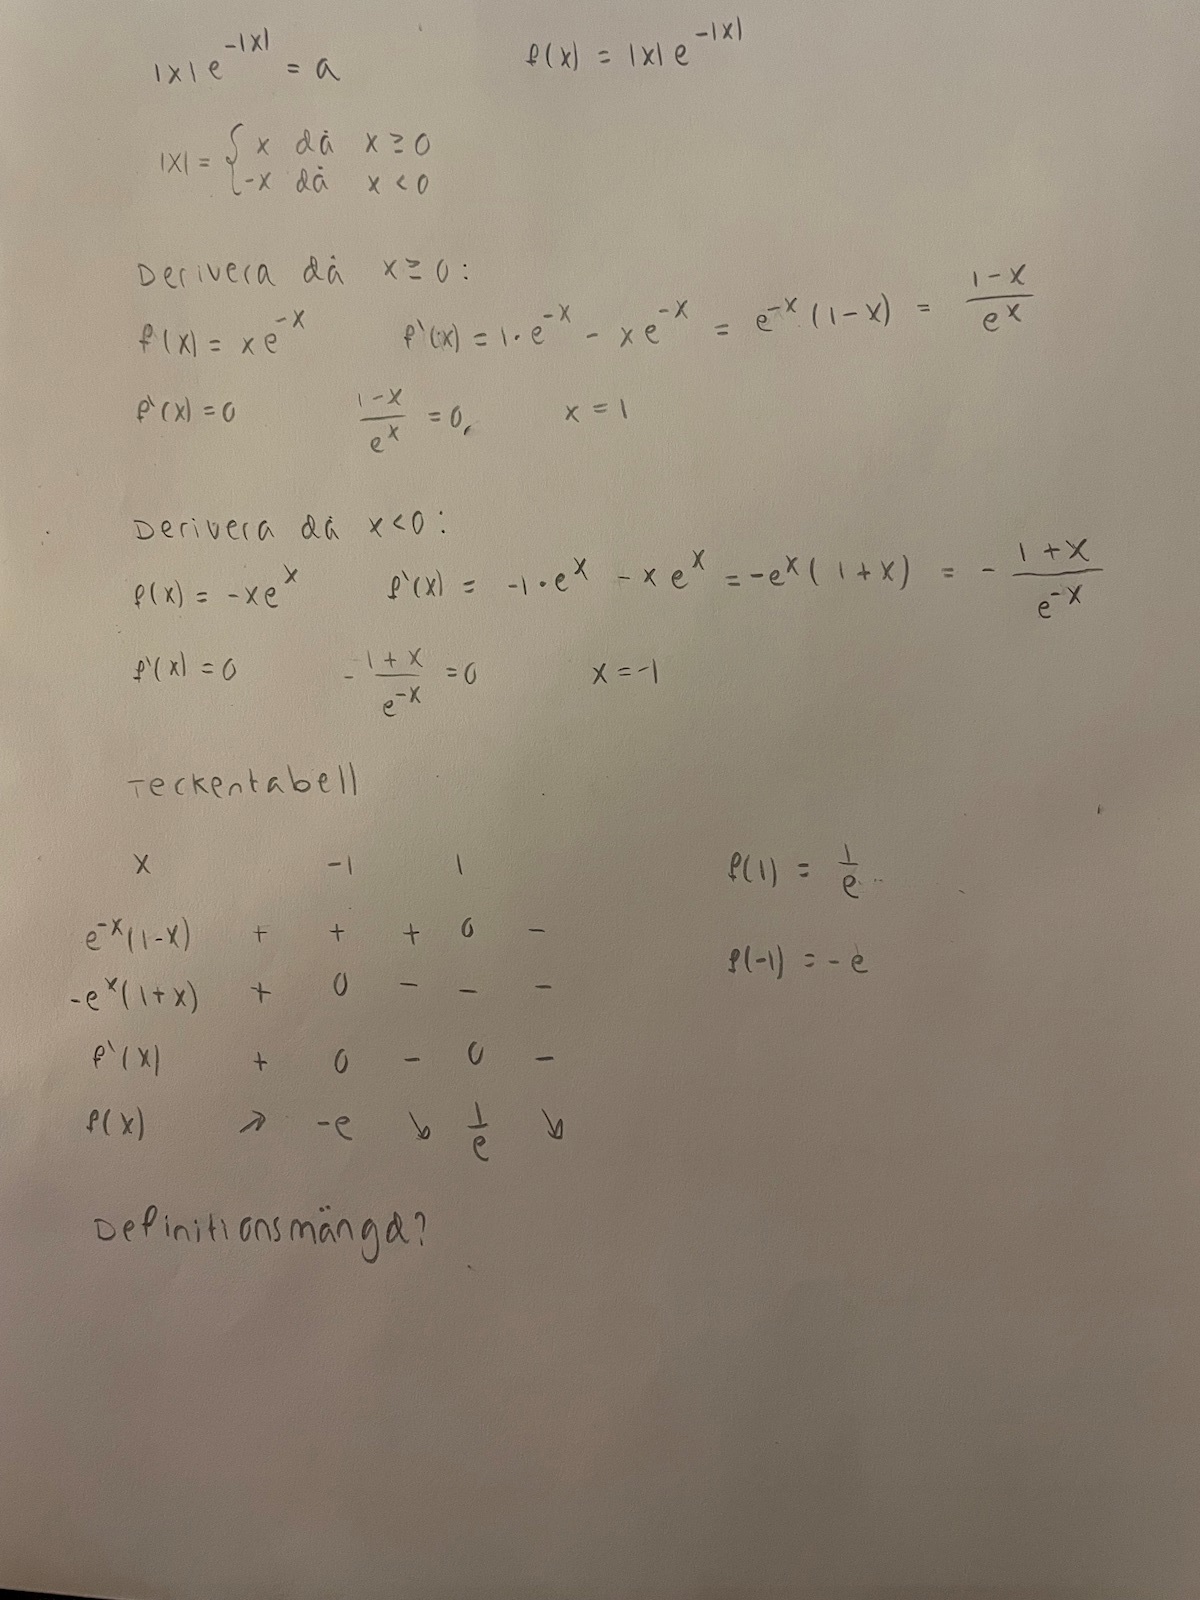 |x|e^{-|x|} = a    f(x) = |x|e^{-|x|}
|x| = { x då x ≥ 0
-x då x < 0
Derivera då x ≥ 0:
f(x) = xe^{-x}    f'(x) = 1·e^{-x} - xe^{-x} = e^{-x}(1-x) = \frac{1-x}{e^x}
f'(x) = 0    \frac{1-x}{e^x} = 0,    x = 1
Derivera då x<0:
f(x) = -xe^x    f'(x) = -1·e^x - xe^x = -e^x(1+x) = -\frac{1+x}{e^{-x}}
f'(x) = 0    -\frac{1+x}{e^{-x}} = 0    x = -1
Teckentabell
x    -1    1    f(1) = \frac{1}{e}
e^{-x}(1-x)    +    +    +    0    -
f(-1) = -e
-e^x(1+x)    +    0    -    -    -
f'(x)    +    0    -    0    -
f(x)    ↗    -e    ↘    \frac{1}{e}    ↘
Definitionsmängd?